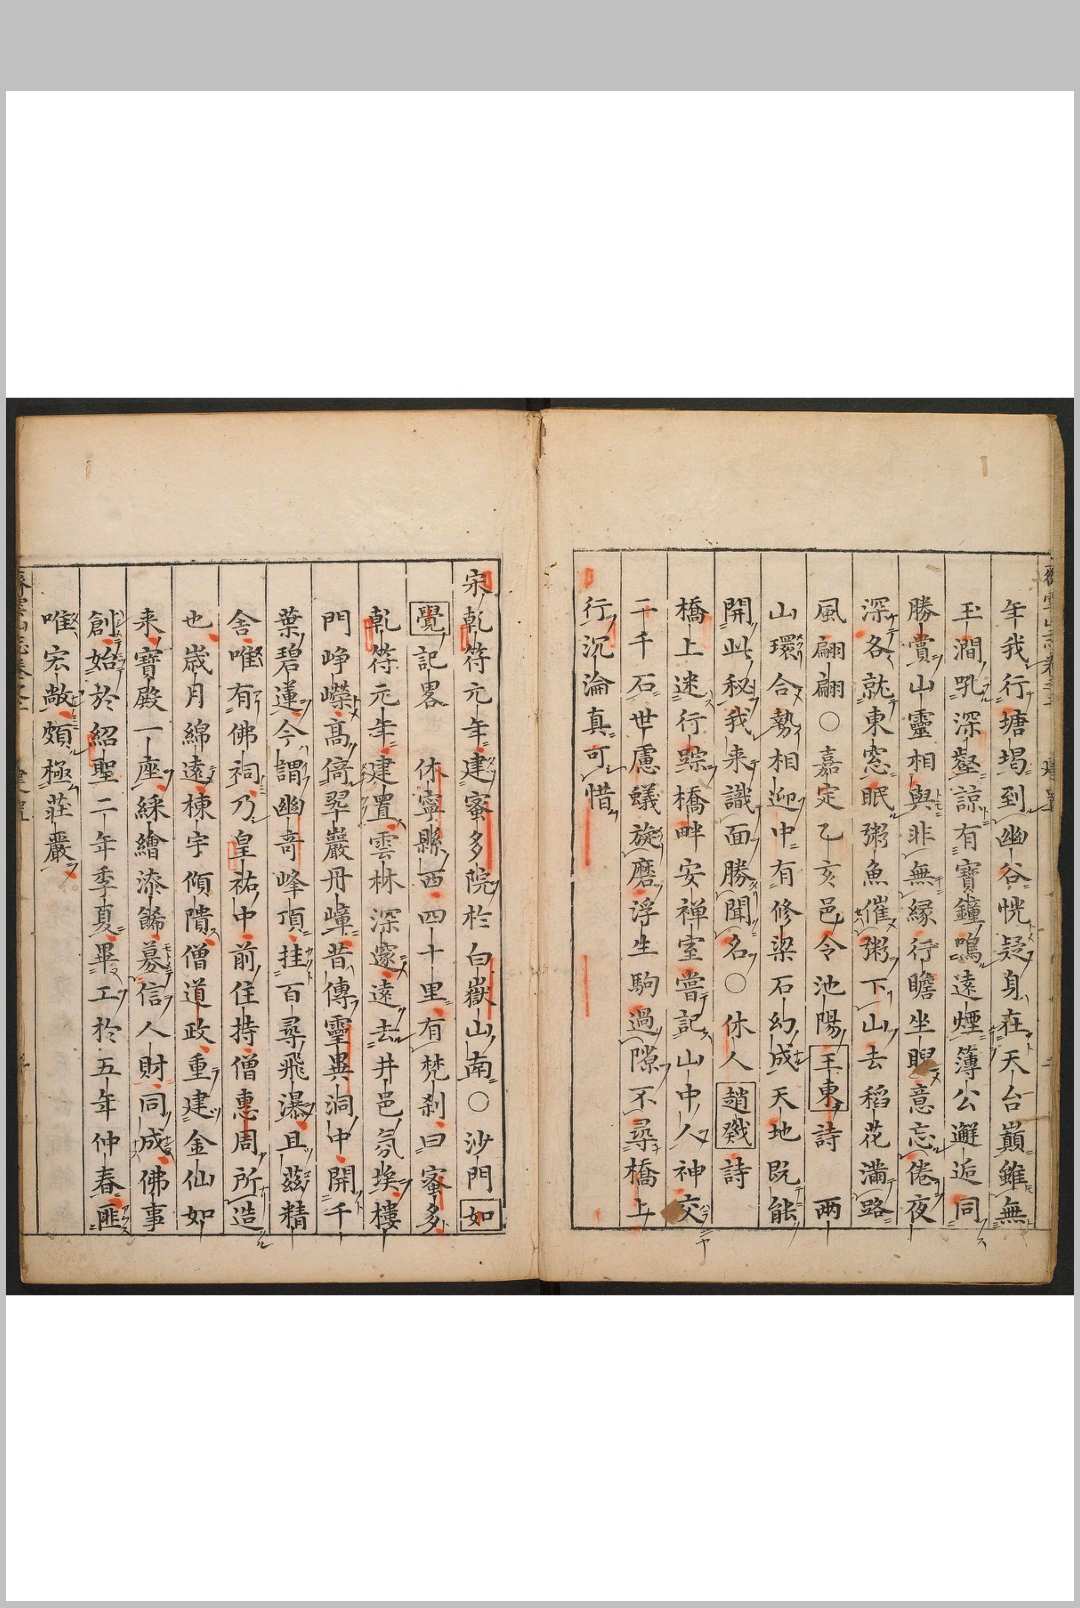 年我行塘堨到幽谷恍疑身在天台巔雖無
玉澗吼深壑諒有寶鐘鳴遠煙簿公邂逅同
勝賞山靈相與非無緣行瞻坐睨意忘倦夜
深各就東窓眠粥魚催粥下山去稻花滿路
風翩翩○嘉定乙亥邑令池陽王東詩　兩
山環合勢相迎中有修梁石幻成天地既能
開此秘我来識面勝聞名○休人趙戣詩
橋上迷行踪橋畔安禅室嘗記山中人神交
二千石世慮蟻旋磨浮生駒過隙不尋橋上
行沉淪真可惜
宋乾符元年建蜜多院於白嶽山南○沙門如
覺記畧　休寧縣西四十里有梵刹曰蜜多
乾符元年建置雲林深邃遠去井邑氛埃樓
門崢嶸高倚翠巖丹嶂昔傳靈異洞中開千
葉碧蓮今謂幽奇峰頂挂百尋飛瀑且茲精
舎唯有佛祠乃皇祐中前住持僧惠周所造
也歳月綿遠棟宇傾隤僧道政重建金仙如
来寶殿一座綵繪漆餙募信人財同成佛事
創始於紹聖二年季夏畢工於五年仲春匪
唯宏敞頗極荘嚴